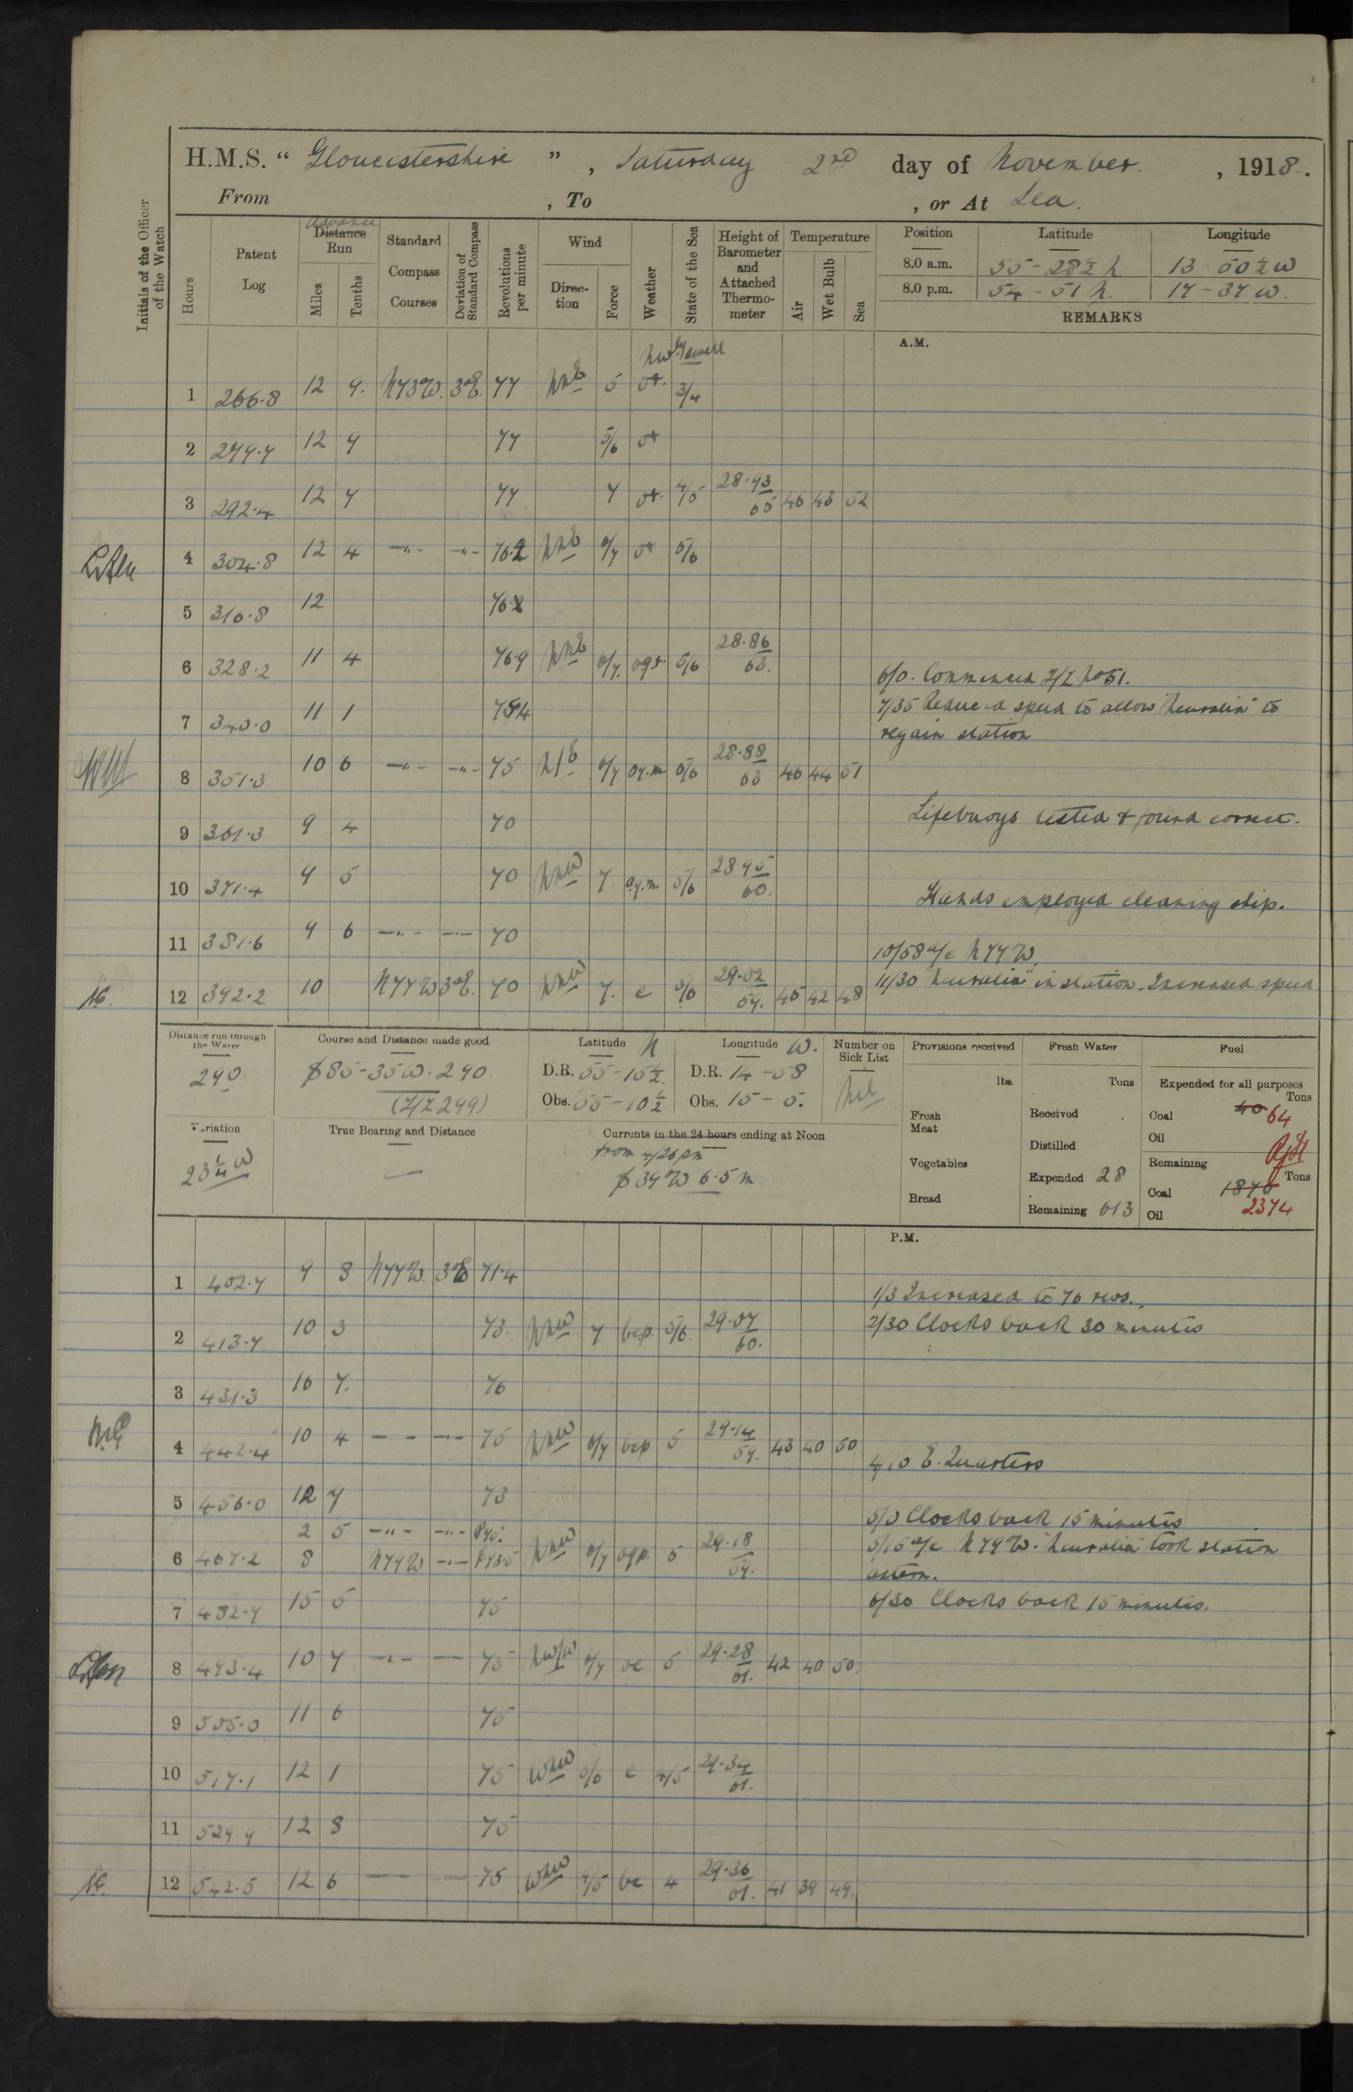 H.M.S. “ Gloucestershire ” , Saturday 2nd day of November. , 1918.
From , To , or At Sea.
Initials of the Officer of the Watch
Hours
Patent Log
Advance
Distance Run
Miles Tenths
Standard Compass Courses
Deviation of Standard Compass
Revolutions per minute
Wind
Direction Force
Weather
State of the Sea
Height of Barometer and Attached Thermometer
Temperature
Air Wet Bulb Sea
Position Latitude Longitude
8.0 a.m. 55-28½ N. 13-50½ W
8.0 p.m. 54-51 N. 17-37 W.
REMARKS
A.M.
NW'ly swell
1 266.8 12 9. N73W. 3°E. 77 NNE 5 or. 3/4
2 279.7 12 9 77 5/6 or
3 292.4 12 7 77 7 or. 4/5 28.93 65 46 43 52
4 304.8 12 4 -"- -"- 76.2 NNE 6/7 or 5/6
5 316.8 12 76.2
6 328.2 11 4 76.9 NNE 6/7. oqr. 5/6 28.86 63. 6/0. Commenced Z/Z No 51.
7 340.0 11 1 7/35 Reduced speed to allow "Neuralia" to
regain station
8 351.3 10 6 -"- -"- 75 6/7 oq.m 5/6 28.88 63 46 44 51
9 361.3 9 4 70 Lifebuoys tested & found correct.
10 371.4 9 5 70 NNW 7 o.q.m 5/6 28 95 60. Hands employed cleaning ship.
11 381.6 9 6 -"- -"- 70 10/58 a/c N77W.
12 392.2 10 N77W 3°E. 70 NNW 7. c 5/6 29.02 59. 45 42 48 11/30 "Neuralia" in station. Increased speed
Distance run through the Water
290
Course and Distance made good
S 85-35 W. 290
(Z/Z 299)
Latitude N
D.R. 55-15½
Obs. 55-10½
Longitude W.
D.R. 14-58
Obs. 15-5.
Number on Sick List
Nil
Provisions received
lbs.
Fresh Meat
Vegetables
Bread
Fresh Water
Tons
Received
Distilled
Expended 28
Remaining 613
Fuel
Expended for all purposes
Tons
Coal 40 64
Oil
Remaining
Tons
Coal 1870 2374
Oil
Variation
23¼ W
True Bearing and Distance
Currents in the 24 hours ending at Noon
from 4/26 pm
S 39 W 6.5 m
P.M.
1 402.7 9 8 N77W. 3°E 71.4 1/3 Increased to 76 revs.
2 413.7 10 3 73. NNW 7 bcp. 5/6. 29.07 60. 2/30 Clocks back 30 minutes
3 431.3 16 7. 76
4 442.4 10 4 - - -"- 75 NNW 6/7 bcp 5 29.14 59. 43 40 50 4/10 E. Quarters
5 456.0 12 7 73 5/0 Clocks back 15 minutes
2 5 -"- -"-
6 467.2 8 N79W -"- NNW 6/7 oqp. 5 29.18 59. 5/15 a/c N79W. "Neuralia" took station
astern.
7 482.7 15 5 75 6/30 Clocks back 15 minutes.
8 493.4 10 7 -"- -- 75 6/7 oc 5 29.28 61. 42 40 50.
9 505.0 11 6 75
10 517.1 12 1 75 WNW 5/6 c 4/5 29.34 61.
11 529.9 12 8 75
12 542.5 12 6 -- -- 75 WNW 4/5 bc 4 29.36 61. 41 39 49.